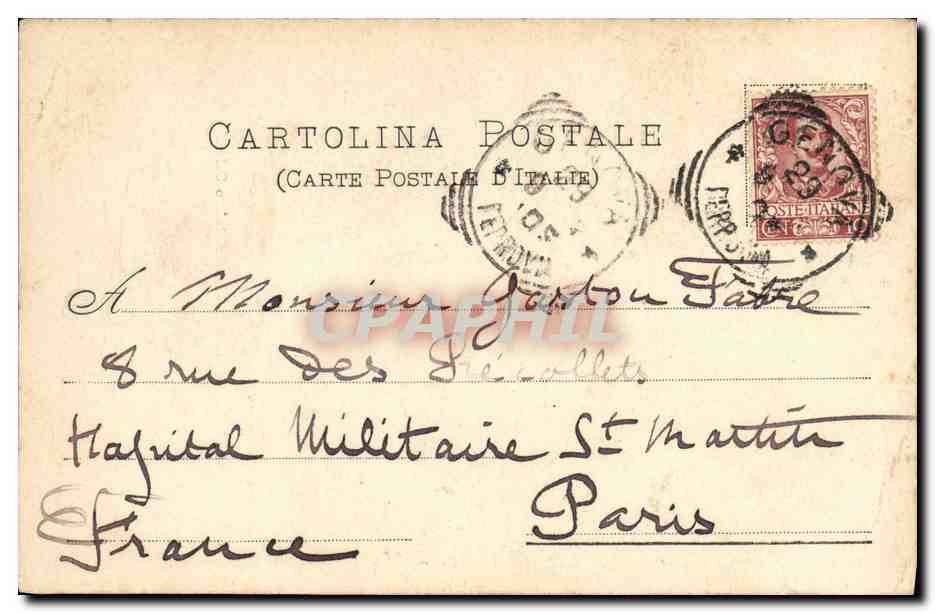 CARTOLINA POSTALE
(CARTE POSTALE D'ITALIE)
GENOVA
29
FERROVIA
POSTE ITALIANE
A Monsieur Gaston Fabre
CPAPHIL
8 rue des Récollets
Hôpital Militaire St Martin
Paris
France